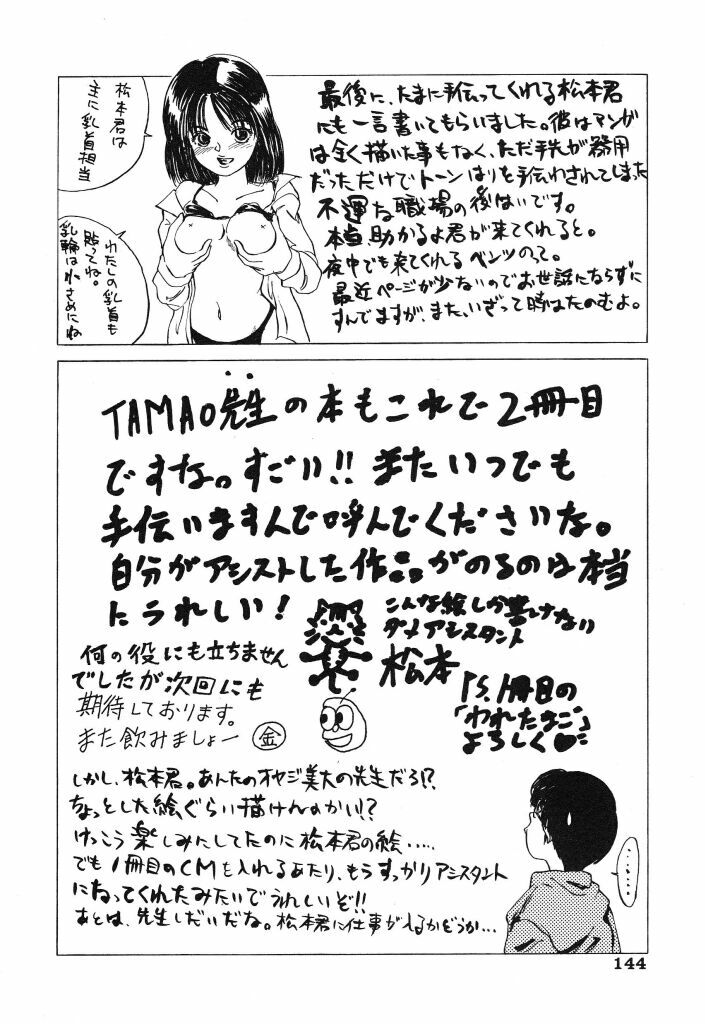 最後に、たまに手伝ってくれる松本君
にも一言書いてもらいました。彼はマンガ
は全く描いた事もなく、ただ手先が器用
だっただけでトーンはりを手伝わされてしまった
不運な職場の後はいです。
本当助かるよ君が来てくれると。
夜中でも来てくれるベンツのって。
最近ページが少ないのでお世話にならずに
すんでますが、また、いざって時はたのむよ。
松本君は
主に乳首担当
わたしの乳首も
貼ってね。
乳輪は小さめにね
TAMAO先生の本もこれで2冊目
ですな。すごい!!またいつでも
手伝いますんで呼んでくださいな。
自分がアシストした作品がのるのは本当
にうれしい!
こんな絵しか書けない
ダメアシスタント
松本
P.S.1冊目の
「われたまご」
よろしく
何の役にも立ちません
でしたが次回にも
期待しております。
また飲みましょー
金
しかし、松本君。あんたのオヤジ美大の先生だろ!?
ちょっとした絵ぐらい描けんのかい!?
けっこう楽しみにしてたのに松本君の絵.....
でも1冊目のCMを入れるあたり、もうすっかりアシスタント
になってくれたみたいでうれしいぞ!!
あとは、先生しだいだな。松本君に仕事がくるかどうか...
......
144